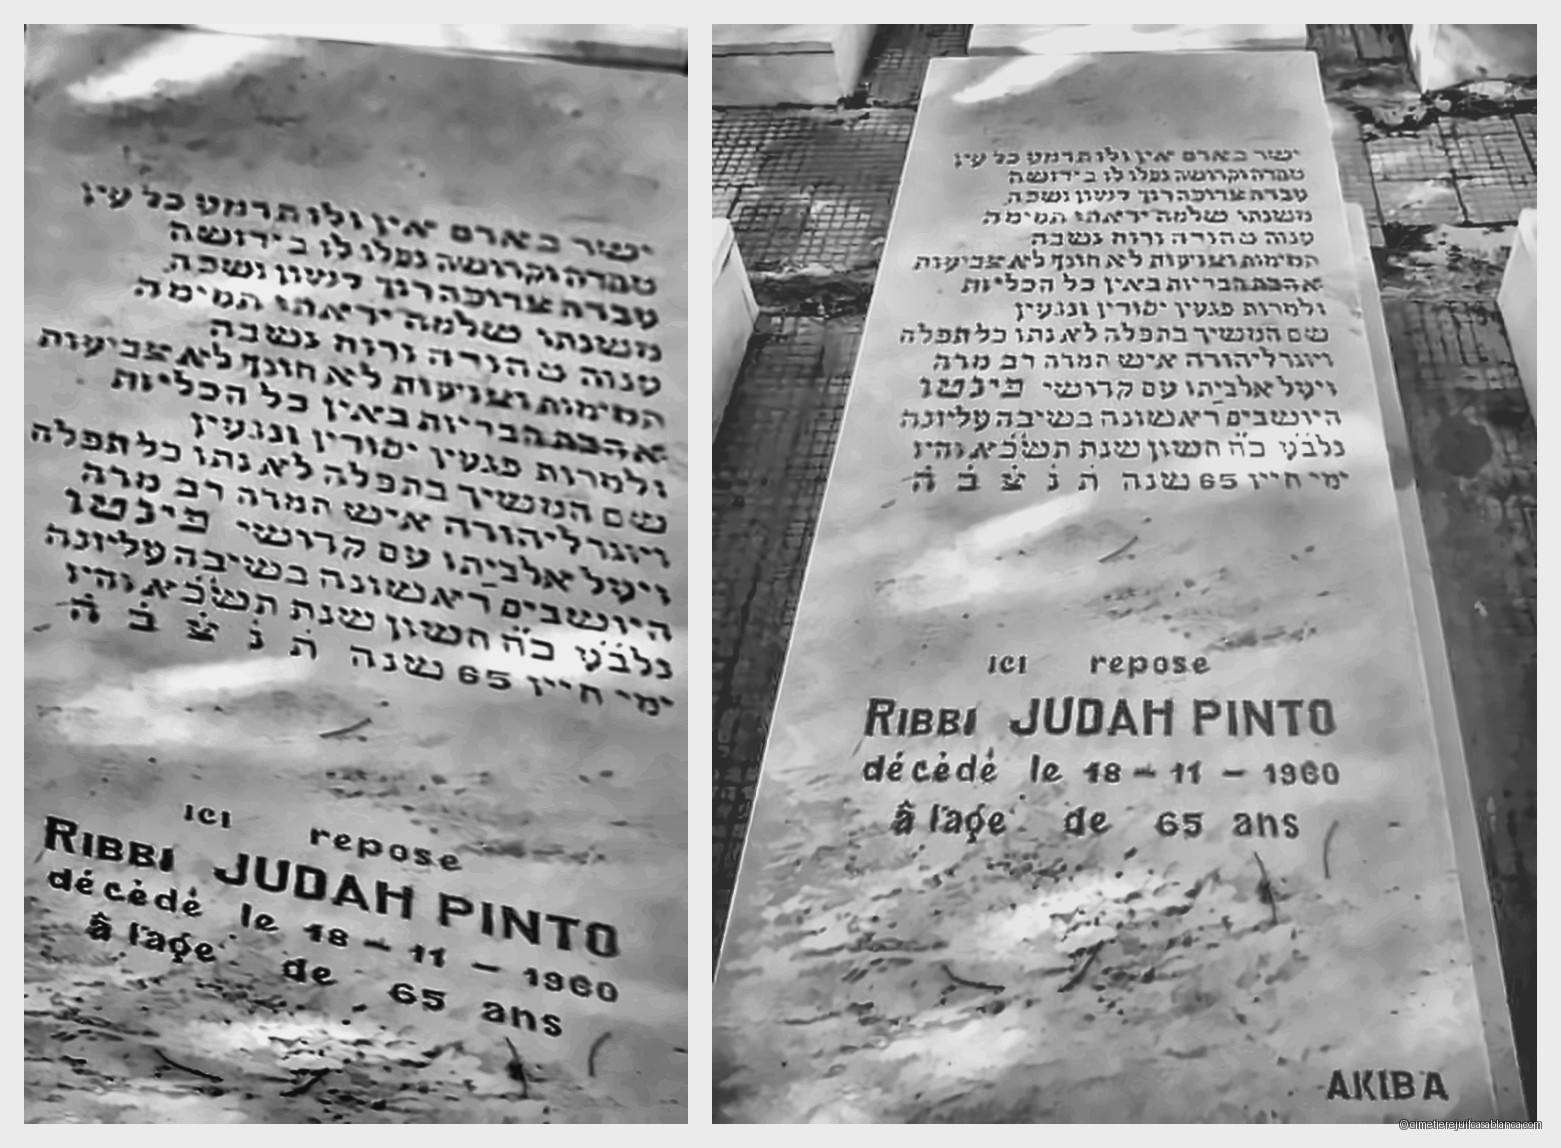 ישר באדם אין ולו תדמט כל עין
טהרה וקדושה נפלו לו בירושה
רוך לשון
משנתו שלמה יראתו תמימה
ענוה טהורה ורוח נשבה
תמימות וצניעות לא חונף לא צביעות
אהבת הבריות באין כל הכליות
ולמרות פגעין יסורין ונגעין
שם המשיך בתפלה לא נתו כל תפלה
ויוגד ליהודה איש חמדה רב
ויעל אל ביתו עם קדושי פינטו
היושבים ראשונה בשיבה עליונה
נלב״ע כ״ח חשון שנת תשכ״א והיו
ימי חייו 65 שנה ת נ צ ב ה
ICI repose
RIBBI JUDAH PINTO
décèdé le 18 - 11 - 1960
â l'age de 65 ans
ישר באדם אין ולו תדמט כל עין
טהרה וקדושה נפלו לו בירושה
רוך לשון
משנתו שלמה יראתו תמימה
ענוה טהורה ורוח נשבה
תמימות וצניעות לא חונף לא צביעות
אהבת הבריות באין כל הכליות
ולמרות פגעין יסורין ונגעין
שם המשיך בתפלה לא נתו כל תפלה
ויוגד ליהודה איש חמדה רב
ויעל אל ביתו עם קדושי פינטו
היושבים ראשונה בשיבה עליונה
נלב״ע כ״ח חשון שנת תשכ״א והיו
ימי חייו 65 שנה ת נ צ ב ה
ICI repose
RIBBI JUDAH PINTO
décèdé le 18 - 11 - 1960
â l'age de 65 ans
AKIBA
©cimetierejuifcasablanca.com